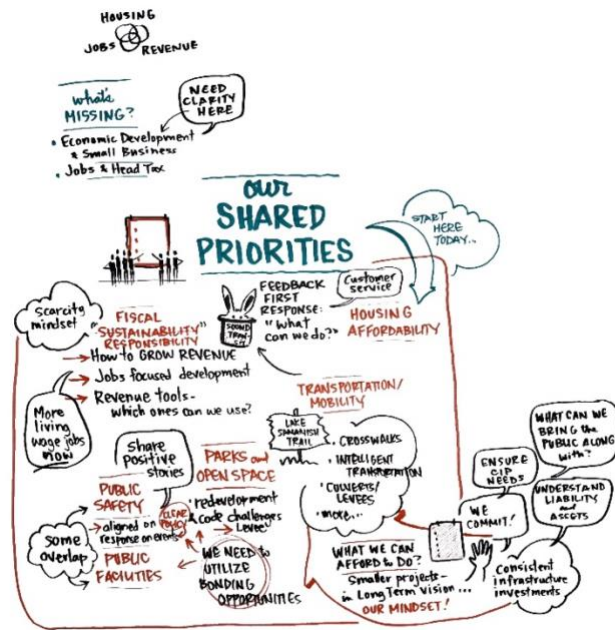 HOUSING
JOBS
REVENUE
what's
MISSING?
NEED
CLARITY
HERE
• Economic Development
& Small Business
• Jobs & Head Tax
our
SHARED
PRIORITIES
START
HERE
TODAY...
scarcity
mindset
FISCAL
"SUSTAINABILITY"
RESPONSIBILITY
→ How to GROW REVENUE
→ Jobs focused development
→ Revenue tools-
which ones can we use?
More
living
wage jobs
now
SOUND
TRAN-
SIT
FEEDBACK
FIRST
RESPONSE:
"What
can we do?"
Customer
service
HOUSING
AFFORDABILITY
TRANSPORTATION/
MOBILITY
LAKE
SAMMAMISH
TRAIL
• CROSSWALKS
• INTELLIGENT
TRANSPORTATION
• CULVERTS/
LEVEES
• more...
share
positive
stories
PARKS and
OPEN SPACE
• redevelopment
& code challenges
→ Levee
PUBLIC
SAFETY
→ aligned on
response on events
CLEAR
POLICY
some
overlap
PUBLIC
FACILITIES
WE NEED to
UTILIZE
BONDING
OPPORTUNITIES
WHAT WE CAN
AFFORD to DO?
Smaller projects-
in Long Term Vision...
OUR MINDSET!
WE
COMMIT!
ENSURE
CIP
NEEDS
WHAT CAN WE
BRING the
PUBLIC ALONG
with?
UNDERSTAND
LIABILITY
and
ASSETS
Consistent
infrastructure
investments